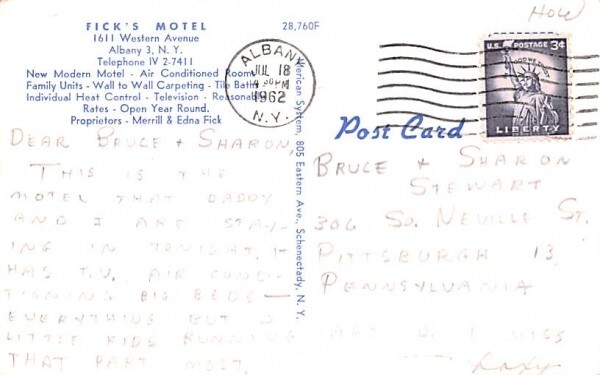 FICK'S MOTEL
1611 Western Avenue
Albany 3, N. Y.
Telephone IV 2-7411
New Modern Motel - Air Conditioned Rooms
Family Units - Wall to Wall Carpeting - Tile Baths
Individual Heat Control - Television - Reasonable
Rates - Open Year Round.
Proprietors - Merrill & Edna Fick
28,760F
American System, 805 Eastern Ave., Schenectady, N. Y.
ALBANY
JUL 18
PM
1962
N.Y.
U.S. POSTAGE 3¢
IN GOD WE TRUST
LIBERTY
HOW
Post Card
DEAR BRUCE & SHARON,
THIS IS THE
MOTEL THAT DADDY
AND I ARE STAY-
ING IN TONIGHT. IT
HAS T.V., AIR COND-
TIONING BIG BEDS —
EVERYTHING BUT 2
LITTLE KIDS RUNNING I MISS
THAT PART MOST.
BRUCE & SHARON
STEWART
306 SO. NEVILLE ST.
PITTSBURGH 13,
PENNSYLVANIA